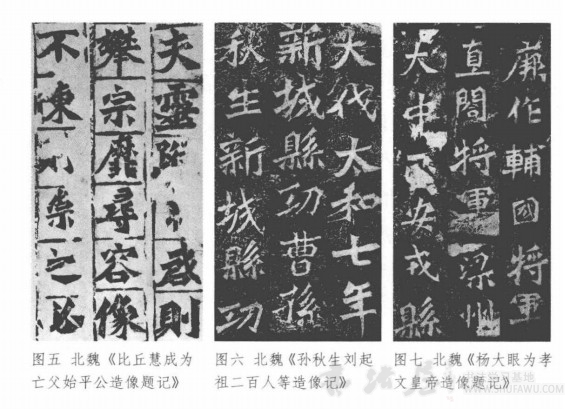 夫靈啟則
攀宗靡尋容像
不陳則崇之必
大代太和七年
新城縣功曹孫
秋生新城縣功
作輔國將軍
直閤將軍梁州
大中正安戎縣
图五 北魏《比丘慧成为
亡父始平公造像题记》
图六 北魏《孙秋生刘起
祖二百人等造像记》
图七 北魏《杨大眼为孝
文皇帝造像题记》
书法学习基地
WWW.SHUFAWU.COM